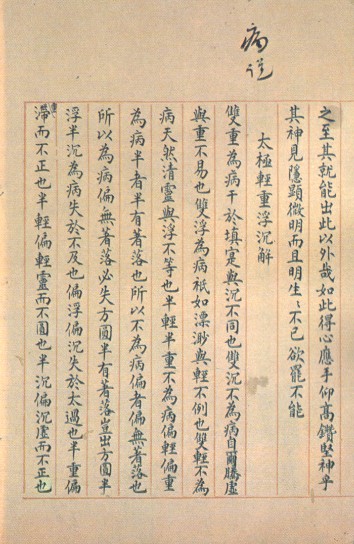 病说
之至其就能出此以外哉如此得心應手仰高鑽堅神乎
其神見隱顯微明而且明生〻不已欲罷不能
太極輕重浮沉解
雙重為病干於填寔與沉不同也雙沉不為病自爾騰虛
與重不易也雙浮為病祇如漂渺與輕不例也雙輕不為
病天然清靈與浮不等也半輕半重不為病偏輕偏重
為病半者半有著落也所以不為病偏者偏無著落也
所以為病偏無著落必失方圓半有著落豈出方圓半
浮半沉為病失於不及也偏浮偏沉失於太過也半重偏
重滯而不正也半輕偏輕靈而不圓也半沉偏沉虛而不正也